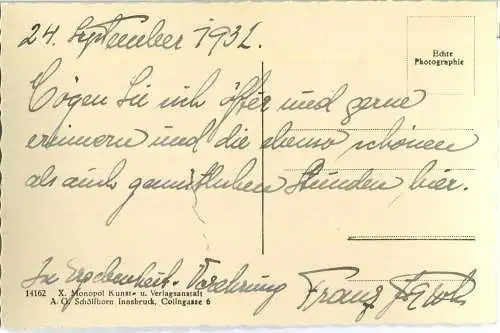 24. September 1931.
Echte
Photographie
Mögen Sie sich öfter und gerne
erinnern und die ebenso schönen
als auch gemütlichen Stunden hier.
In Ergebenheit - Verehrung Franz
14162 X. Monopol Kunst- u. Verlagsanstalt
A. G. Schöllhorn Innsbruck, Colingasse 6